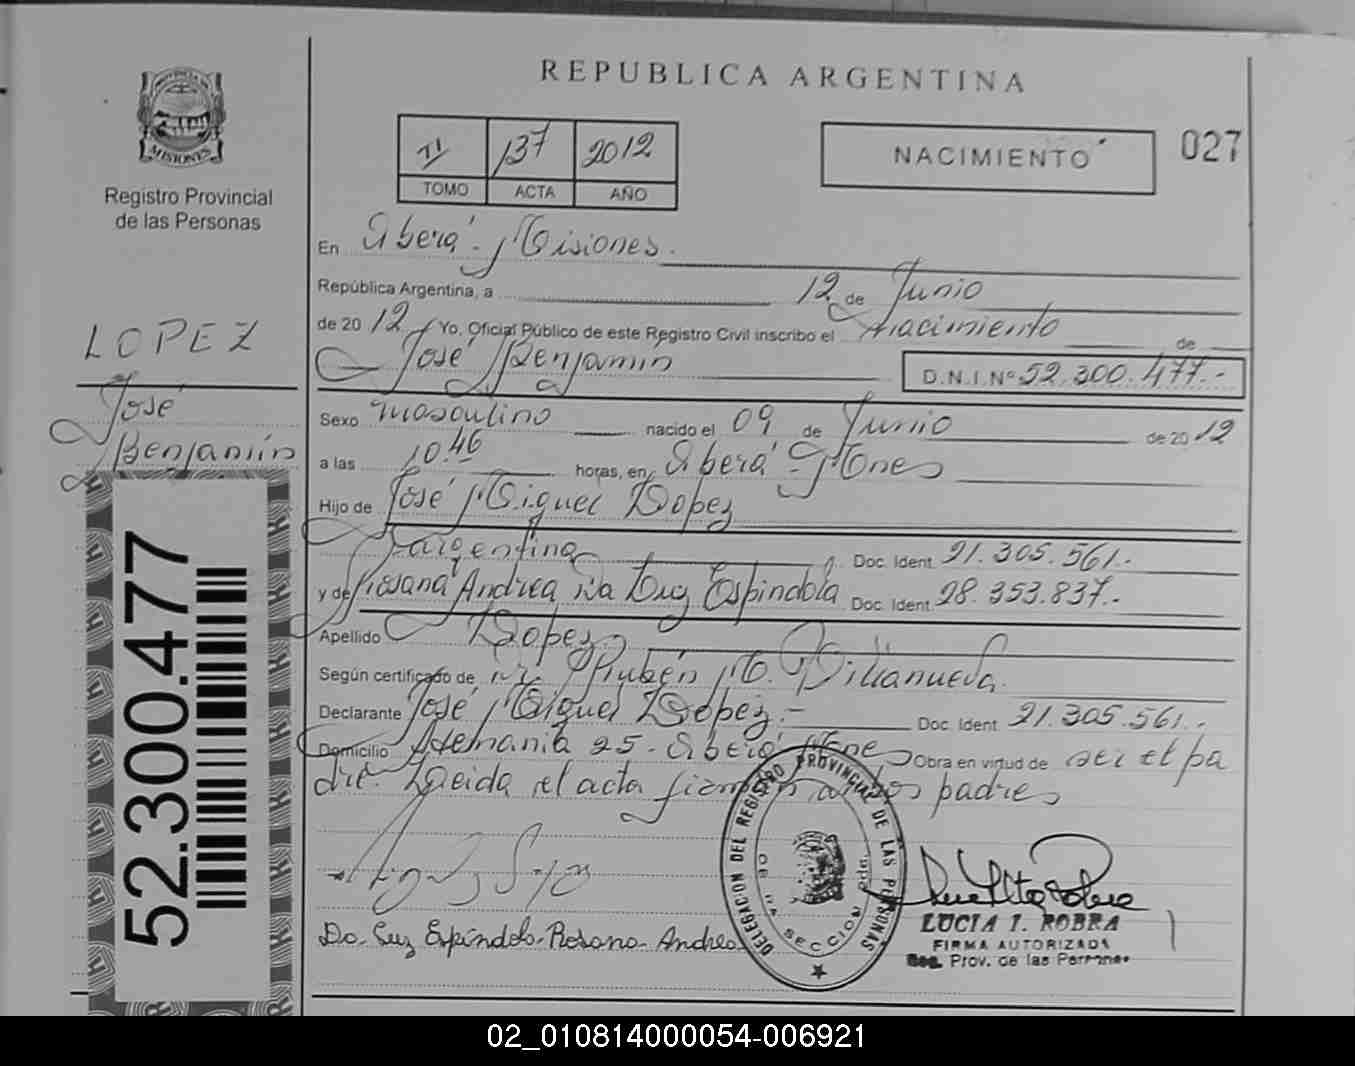 REPUBLICA ARGENTINA
PROVINCIA DE
MISIONES
Registro Provincial
de las Personas
II 137 2012
TOMO ACTA AÑO
NACIMIENTO
027
En Oberá - Misiones.
República Argentina, a 12 de Junio
de 20 12 Yo, Oficial Público de este Registro Civil inscribo el nacimiento de
José Benjamín D.N.I. Nº 52.300.477.-
LOPEZ
José
Benjamín
Sexo masculino nacido el 09 de Junio de 20 12
a las 10.46 horas, en Oberá - Mnes
Hijo de José Miguel Lopez
argentino Doc. Ident. 21.305.561.-
y de Rosana Andrea Da Luz Espindola Doc. Ident. 28.353.837.-
Apellido Lopez
Según certificado de Dr. Rubén M. Villanueva.
Declarante José Miguel Lopez.- Doc. Ident. 21.305.561.-
Domicilio Alemania 25 - Oberá Mnes Obra en virtud de ser el pa
dre. Leida el acta firman ambos padres
52.300.477
DELEGACION DEL REGISTRO PROVINCIAL DE LAS PERSONAS
SECCION
Da Luz Espíndola Rosana Andrea
LUCIA I. ROBRA
FIRMA AUTORIZADA
Reg. Prov. de las Personas
02_010814000054-006921